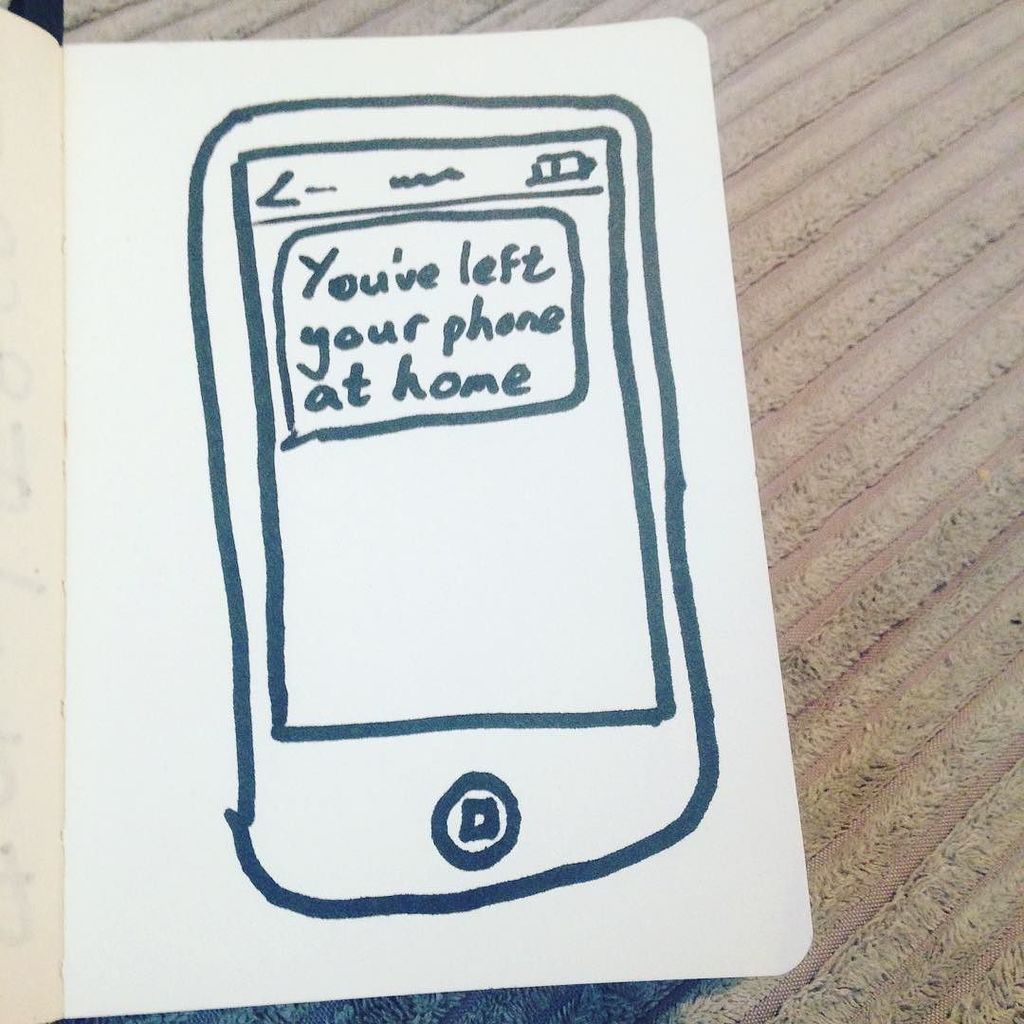 You've left
your phone
at home